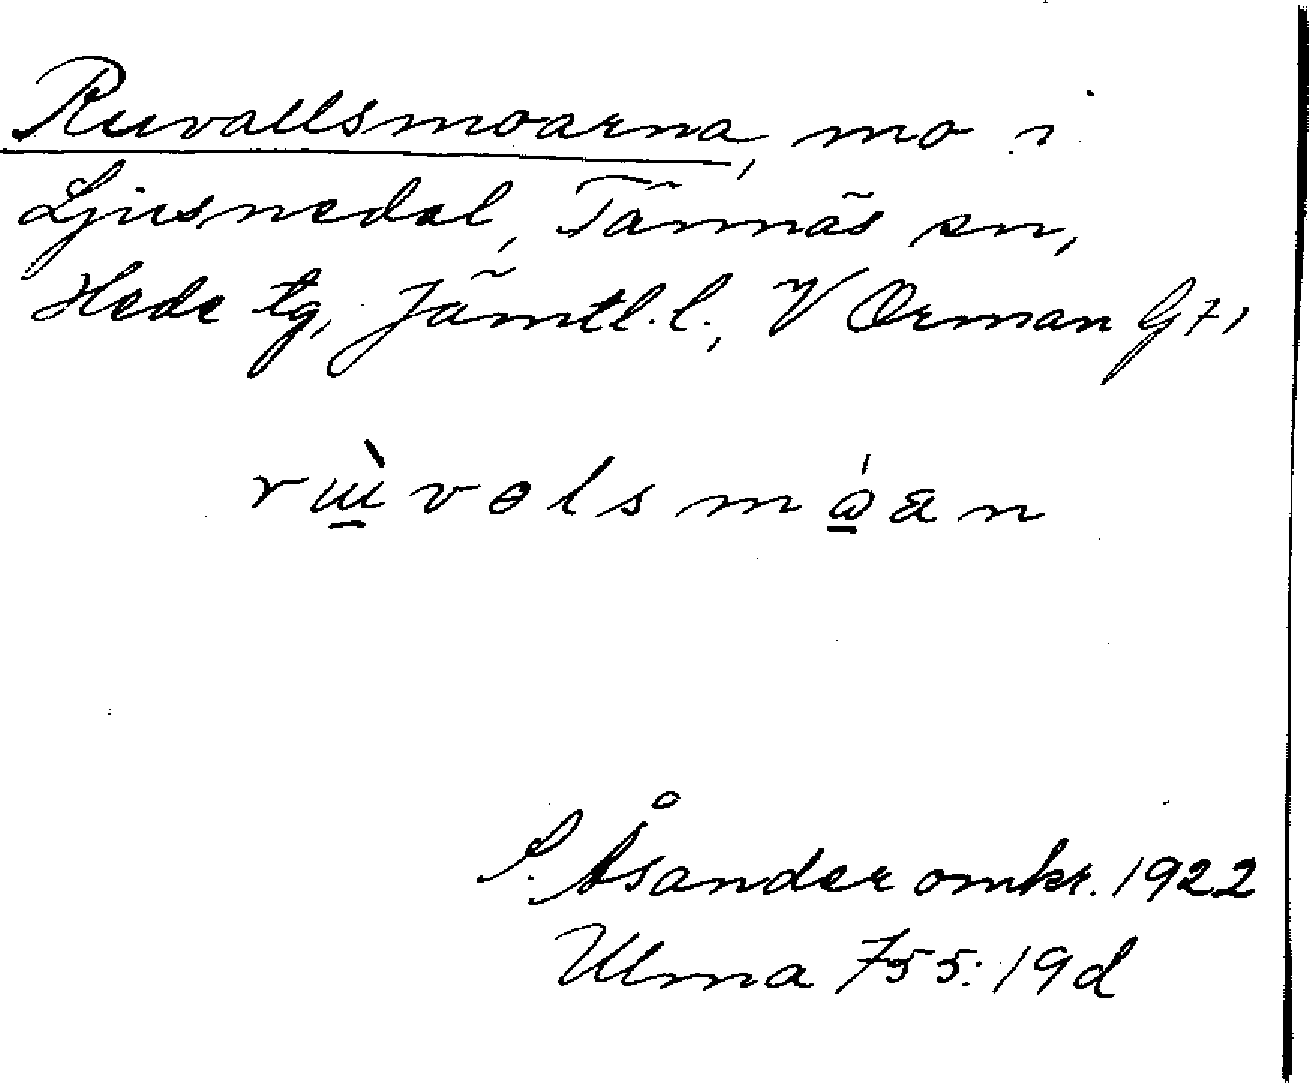 Ruvallsmoarna, mo i
Ljusnedal, Tännäs sn,
Hede tg, Jämtl. l., V Orman G71
S. Åsander omkr. 1922
Ulma 755:19d